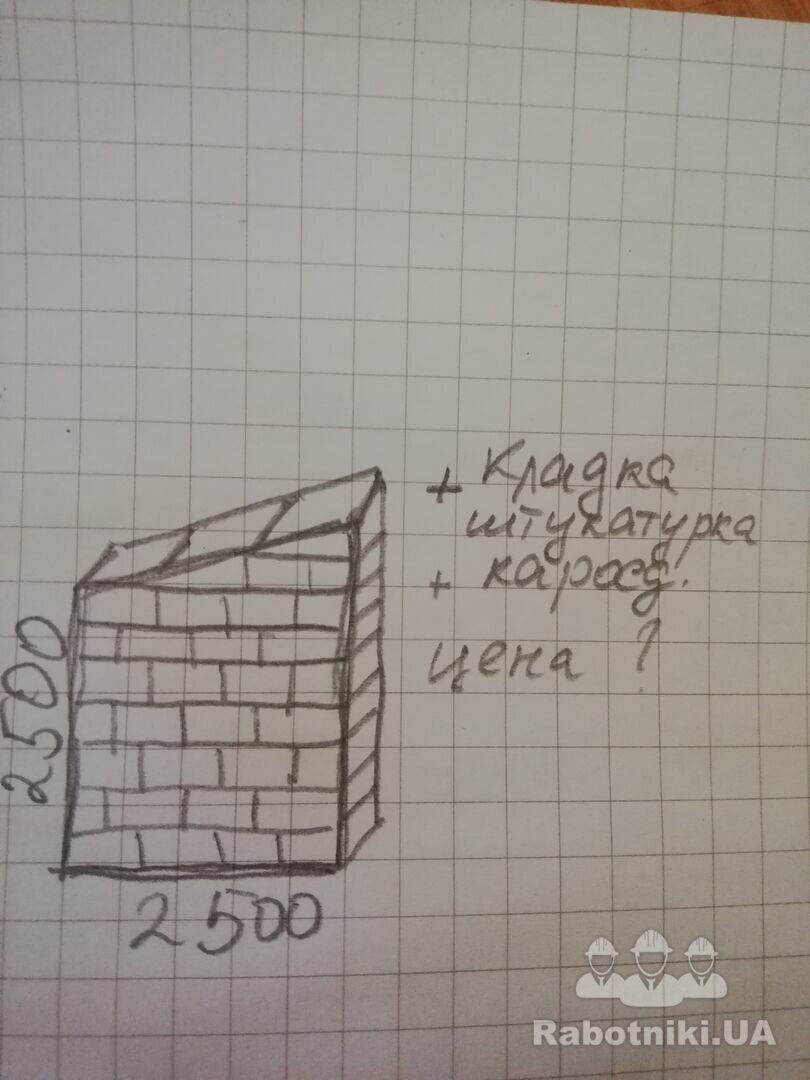 + Кладка
штукатурка
+ кароед.
цена ?
2500
2500
Rabotniki.UA